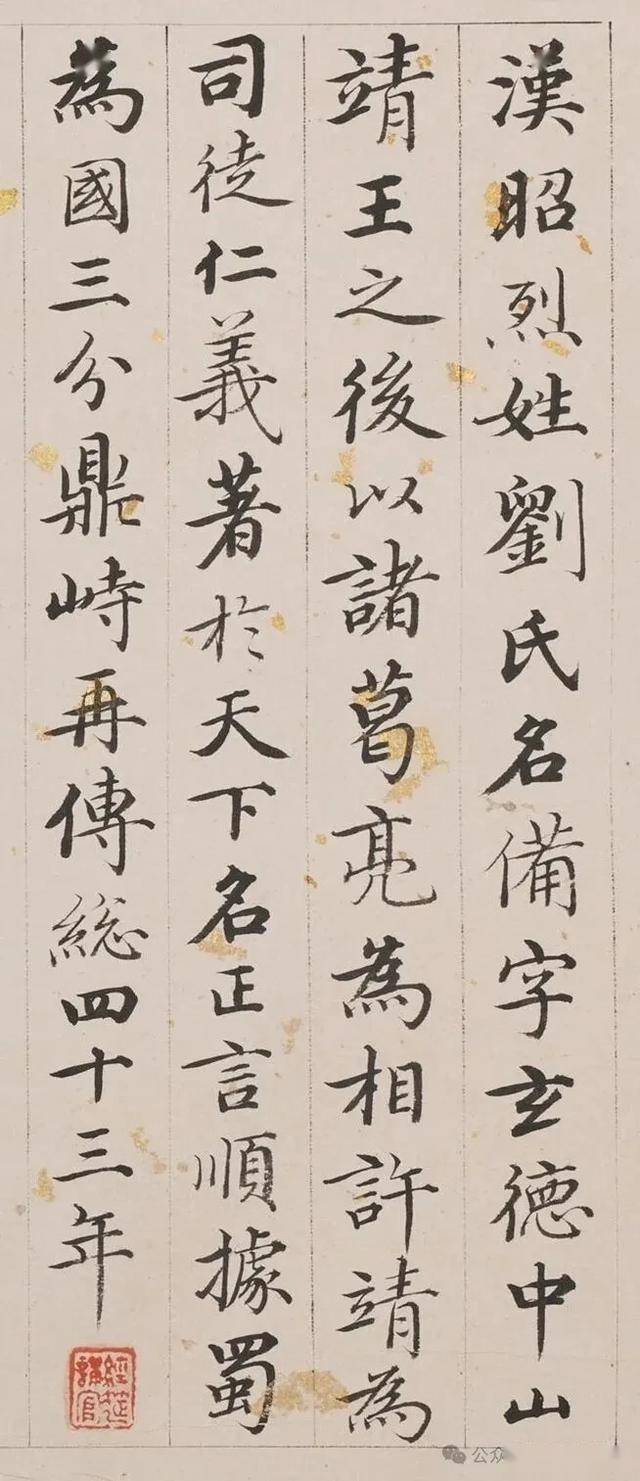 漢昭烈姓劉氏名備字玄德中山
靖王之後以諸葛亮為相許靖為
司徒仁義著於天下名正言順據蜀
為國三分鼎峙再傳総四十三年
經筵講官
公众